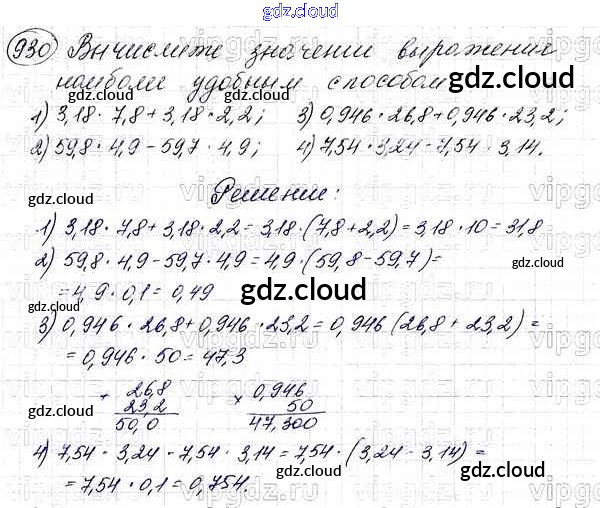 gdz.cloud
930 Вычислите значении выражения
наиболи удобным способом
gdz.cloud
1) 3,18 · 7,8 + 3,18 · 2,2; 3) 0,946 · 26,8 + 0,946 · 23,2;
2) 59,8 · 4,9 - 59,7 · 4,9; 4) 7,54 · 3,24 - 7,54 · 3,14.
gdz.cloud
Решении:
gdz.cloud
1) 3,18 · 7,8 + 3,18 · 2,2 = 3,18 · (7,8 + 2,2) = 3,18 · 10 = 31,8
2) 59,8 · 4,9 - 59,7 · 4,9 = 4,9 · (59,8 - 59,7) =
gdz.cloud
= 4,9 · 0,1 = 0,49
gdz.cloud
3) 0,946 · 26,8 + 0,946 · 23,2 = 0,946 (26,8 + 23,2) =
= 0,946 · 50 = 47,3
+ 26,8 × 0,946
23,2 50
50,0 47,300
gdz.cloud gdz.cloud
4) 7,54 · 3,24 - 7,54 · 3,14 = 7,54 · (3,24 - 3,14) =
= 7,54 · 0,1 = 0,754.
gdz.cloud
gdz.cloud